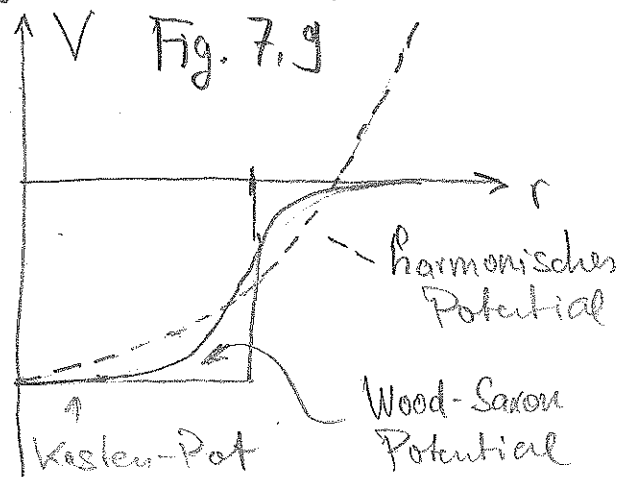 V Fig. 7.9
r
harmonisches
Potential
Wood-Saxon
Potential
Kasten-Pot